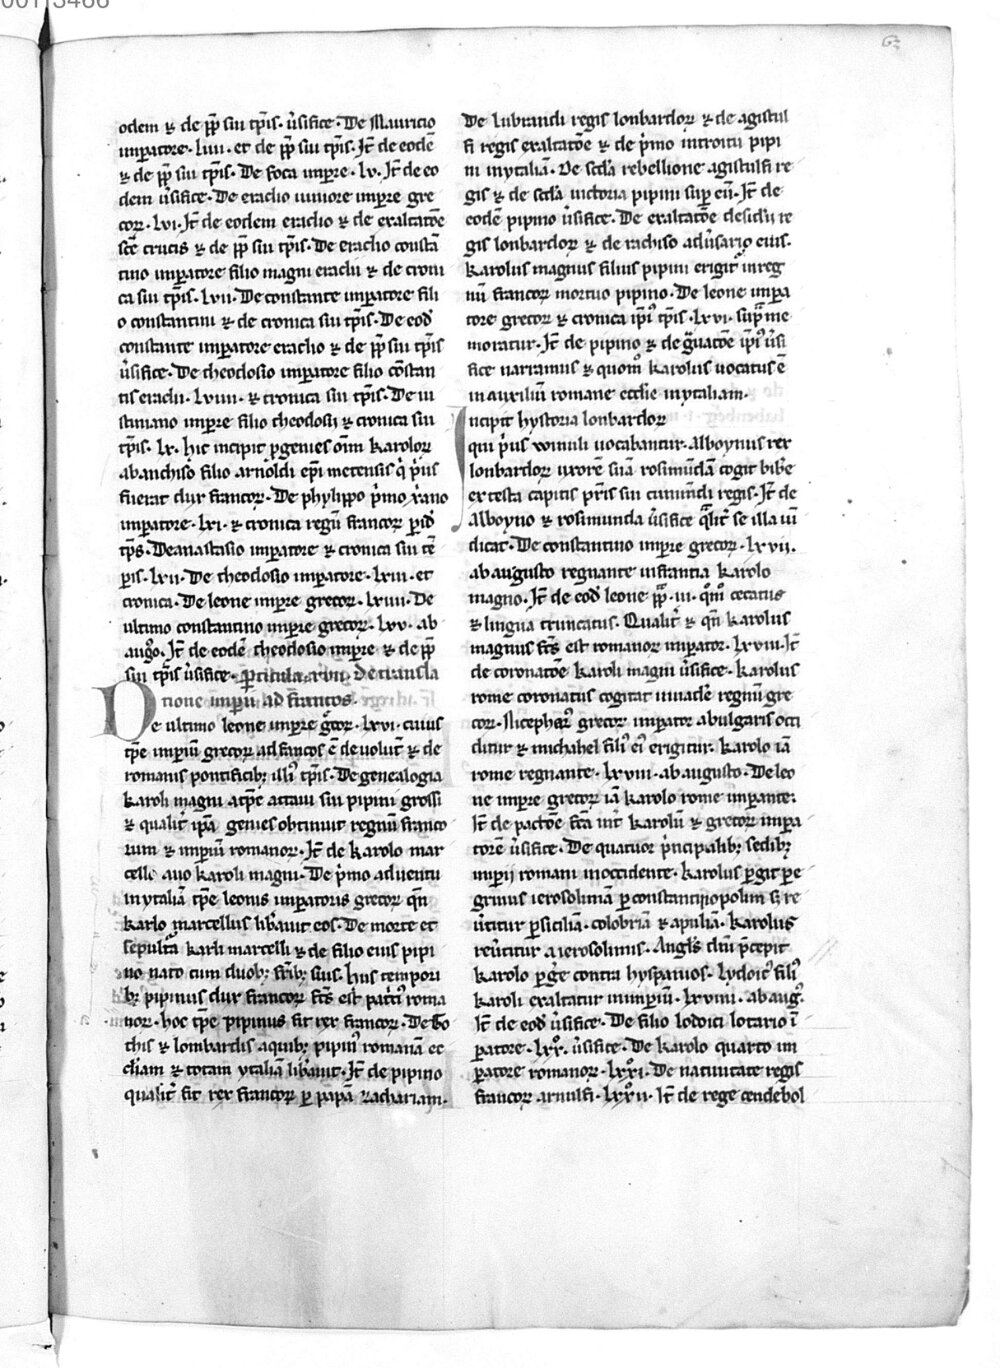 odem ⁊ de p̱p̄ sui tp̄is. ůsifice. De Mauricio
imꝑatore. liiii. et de p̱p̄ sui tp̄is. Jt̄ de eodē
⁊ de p̱p̄ sui tp̄is. De foca imꝑre. lv. Jt̄ de eo
dem ůsifice. De eraclio iuniore imꝑre gre
coꝝ. lvi. Jt̄ de eodem eraclio ⁊ de exaltatōe
scē crucis ⁊ de p̱p̄ sui tp̄is. De eraclio constā
tino imꝑatore filio magni eraclii ⁊ de croni
ca sui tp̄is. lvii. De constante imꝑatore fili
o constantini ⁊ de cronica sui tp̄is. De eod̄
constante imꝑatore eraclio ⁊ de p̱p̄ sui tp̄is
ůsifice. De theodosio imꝑatore filio cōstan
tis eraclii. lviiii. ⁊ cronica sui tp̄is. De iu
stiniano imꝑre filio theodosii ⁊ cronica sui
tp̄is. lx. hic incipit ꝓgenies om̄i Karoloꝝ
ab anchiso filio arnoldi ep̄i metensis q̇ ṗus
fuerat dux francoꝝ. De phylippo ṗmo
imꝑatore. lxi. ⁊ cronica regū francoꝝ ꝑ id̄
tp̄s. De anastasio imꝑatore ⁊ cronica sui tē
ꝑis. lxii. De theodosio imꝑatore. lxiii. et
cronica. De leone imꝑre grecoꝝ. lxiiii. De
ultimo constantino imꝑre grecoꝝ. lxv. ab
augͦ. Jt̄ de eodē theodosio imꝑre ⁊ de p̱p̄
sui tp̄is ůsifice. ꝑticula xvii. de transla
tione imꝑii ad francos.
De ultimo leone imꝑre gͣcoꝝ. lxvi. cuius
tp̄e imꝑiū grecoꝝ ad francos ē deuolut̄ ⁊ de
romanis pontificibꝫ illiꝰ tp̄is. De genealogia
Karoli magni a tp̄e attaui sui pipini grossi
⁊ qualit̄ ip̄a genies obtinuit regnū franco
rum ⁊ imꝑiū romanoꝝ. Jt̄ de Karolo mar
cello auo Karoli magni. De ṗmo aduentu
in ytaliā tp̄e leonis imꝑatoris grecoꝝ qn̄
Karlo marcellus lib̄auit eos. De morte et
sepultͣ Karli marcelli ⁊ de filio eius pipi
no nato cum duobꝫ fr̄ibꝫ suis. hiis tempori
bꝫ pipinus dux francoꝝ fcs̄ est pat̄ciꝰ roma
noꝝ. hoc tp̄e pipinus fit rex francoꝝ. De Go
this ⁊ lombardis a quibꝫ pipinꝰ romanā ec
cl̄iam ⁊ totam ytaliā lib̄auit. Jt̄ de pipino
qualit̄ fit rex francoꝝ ꝑ papā zachariam.
De lubrandi regis lonbardoꝝ ⁊ de agistul
fi regis exaltatōe ⁊ de ṗmo introitu pipi
ni in ytaliam. De scd̄a rebellione agistulfi re
gis ⁊ de scd̄a uictoria pipini suꝑ eū. Jt̄ de
eodē pipino ůsifice. De exaltatōe desid̄ii re
gis lonbardoꝝ ⁊ de rachiso adůsario eius.
Karolus magnus filius pipini erigit̄ in reg
nū francoꝝ mortuo pipino. De leone imꝑa
tore grecoꝝ ⁊ cronica ip̄iꝰ tp̄is. lxvi. supͣ me
moratur. Jt̄ de pipino ⁊ de gͣuatōe ip̄iꝰ ůsi
fice narramus ⁊ quomͦ Karolus uocatus ē
in auxiliū romane eccl̄ie in ytaliam.
Incipit hystoria lonbardoꝝ
qui ṗus winuli uocabantur. alboynus rex
lonbardoꝝ uxorē suā rosimundā cogit bib̄e
ex testa capitis pr̄is sui cunimūdi regis. Jt̄ de
alboyno ⁊ rosimunda ůsifice qͣlit̄ se illa uī
dicat. De constantino imꝑre grecoꝝ. lxvii.
ab augusto regnante in francia Karolo
magno. Jt̄ de eod̄ leone p̱p̄. iii. qͦm̄ cecatus
⁊ lingua truncatus. Qualit̄ ⁊ qn̄ Karolus
magnus fcs̄ est romanoꝝ imꝑator. lxviii. Jt̄
de coronatōe Karoli magni ůsifice. Karolus
rome coronatus cogitat inuad̄e regnū gre
coꝝ. Nicephorꝰ grecoꝝ imꝑator a bulgaris occi
ditur ⁊ michahel filiꝰ eiꝰ erigitur. Karolo iā
rome regnante. lxviii. ab augusto. De leo
ne imꝑre grecoꝝ iā Karolo rome imꝑante.
Jt̄ de pactōe fcā int̄ Karolū ⁊ grecoꝝ imꝑa
torē ůsifice. De quatuor ṗncipalibꝫ sedibꝫ
imꝑii romani in occidente. Karolus ꝑgit ꝑe
grinus ierosolimā ꝑ constantinopolim ⁊ re
ůtitur ꝑ siciliā. colobriā ⁊ apuliā. Karolus
reůtitur a ierosolimis. Angl̄s dn̄i p̄cepit
Karolo ꝑg̃e contra hyspanos. Lydoicꝰ filiꝰ
Karoli exaltatur in imꝑiū. lxviiii. ab augͦ.
Jt̄ de eod̄ ůsifice. De filio lodoici lotario ī
ꝑatore. lxx̊. ůsifice. De Karolo quarto im
ꝑatore romanoꝝ. lxx̊i. De natiuitate regis
francoꝝ arnulfi. lxx̊ii. Jt̄ de rege cendebol